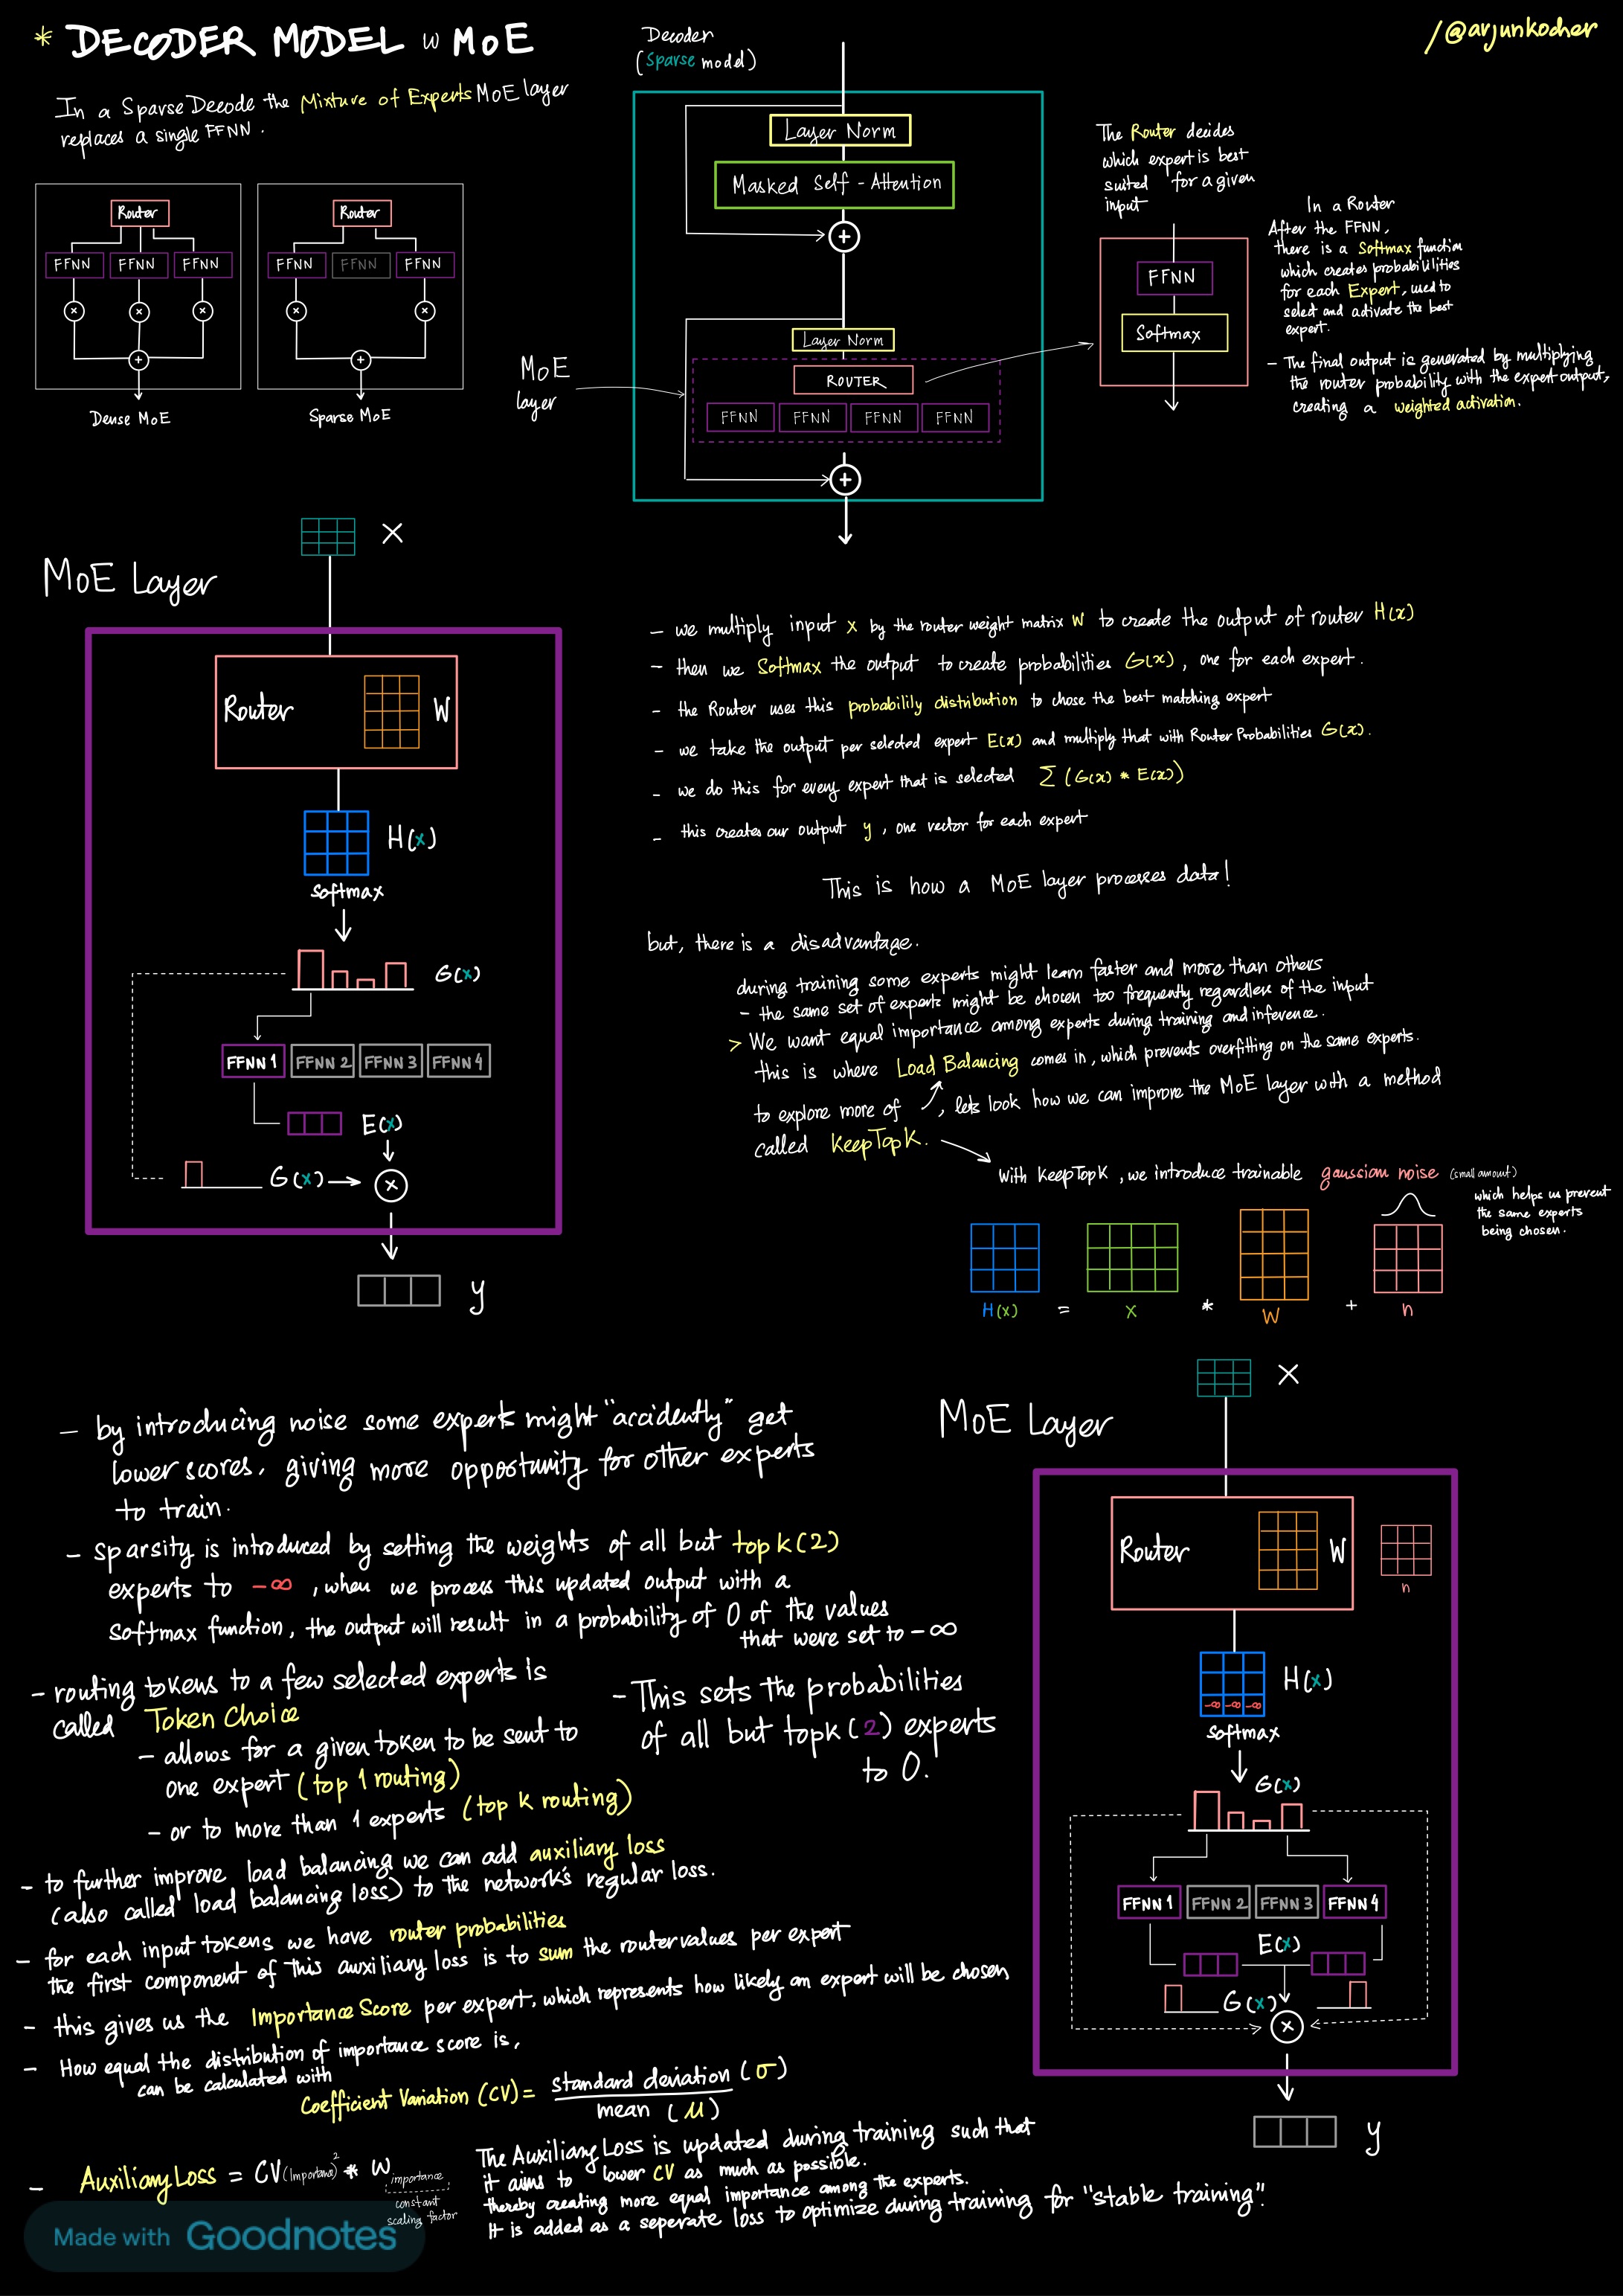 * DECODER MODEL w MoE
/@arjunkocher
In a Sparse Decode the Mixture of Experts MoE layer
replaces a single FFNN.
Router
FFNN FFNN FFNN
× × ×
+
Dense MoE
Router
FFNN FFNN FFNN
× ×
+
Sparse MoE
Decoder
(Sparse model)
Layer Norm
Masked Self-Attention
+
Layer Norm
ROUTER
FFNN FFNN FFNN FFNN
+
MoE
layer
The Router decides
which expert is best
suited for a given
input
FFNN
Softmax
In a Router
After the FFNN,
there is a Softmax function
which creates probabilities
for each Expert, used to
select and activate the best
expert.
- The final output is generated by multiplying
the router probability with the expert output,
creating a weighted activation.
MoE Layer
X
Router W
H(x)
softmax
G(x)
FFNN 1 FFNN 2 FFNN 3 FFNN 4
E(x)
G(x) → ×
y
- we multiply input x by the router weight matrix W to create the output of router H(x)
- then we Softmax the output to create probabilities G(x), one for each expert.
- the Router uses this probability distribution to chose the best matching expert
- we take the output per selected expert E(x) and multiply that with Router Probabilities G(x).
- we do this for every expert that is selected Σ (G(x) * E(x))
- this creates our output y, one vector for each expert
This is how a MoE layer processes data!
but, there is a disadvantage.
during training some experts might learn faster and more than others
- the same set of experts might be chosen too frequently regardless of the input
> We want equal importance among experts during training and inference.
this is where Load Balancing comes in, which prevents overfitting on the same experts.
to explore more of ↗, lets look how we can improve the MoE layer with a method
called KeepTopK.
With KeepTopK, we introduce trainable gaussian noise (small amount)
which helps us prevent
the same experts
being chosen.
H(x) = X * W + n
- by introducing noise some experts might "accidently" get
lower scores, giving more opportunity for other experts
to train.
- sparsity is introduced by setting the weights of all but top k (2)
experts to -∞, when we process this updated output with a
softmax function, the output will result in a probability of 0 of the values
that were set to -∞
- routing tokens to a few selected experts is
called Token Choice
- allows for a given token to be sent to
one expert (top 1 routing)
- or to more than 1 experts (top k routing)
- This sets the probabilities
of all but topk (2) experts
to 0.
- to further improve load balancing we can add auxiliary loss
(also called load balancing loss) to the network's regular loss.
- for each input tokens we have router probabilities
the first component of this auxiliary loss is to sum the router values per expert
- this gives us the Importance Score per expert, which represents how likely an expert will be chosen
- How equal the distribution of importance score is,
can be calculated with
Coefficient Variation (CV) = standard deviation (σ)
mean (μ)
- Auxiliary Loss = CV(Importance)² * W importance
constant
scaling factor
The Auxiliary Loss is updated during training such that
it aims to lower CV as much as possible.
thereby creating more equal importance among the experts.
It is added as a seperate loss to optimize during training for "stable training".
MoE Layer
X
Router W
n
H(x)
-∞ -∞ -∞
softmax
G(x)
FFNN 1 FFNN 2 FFNN 3 FFNN 4
E(x)
G(x)
×
y
Made with Goodnotes